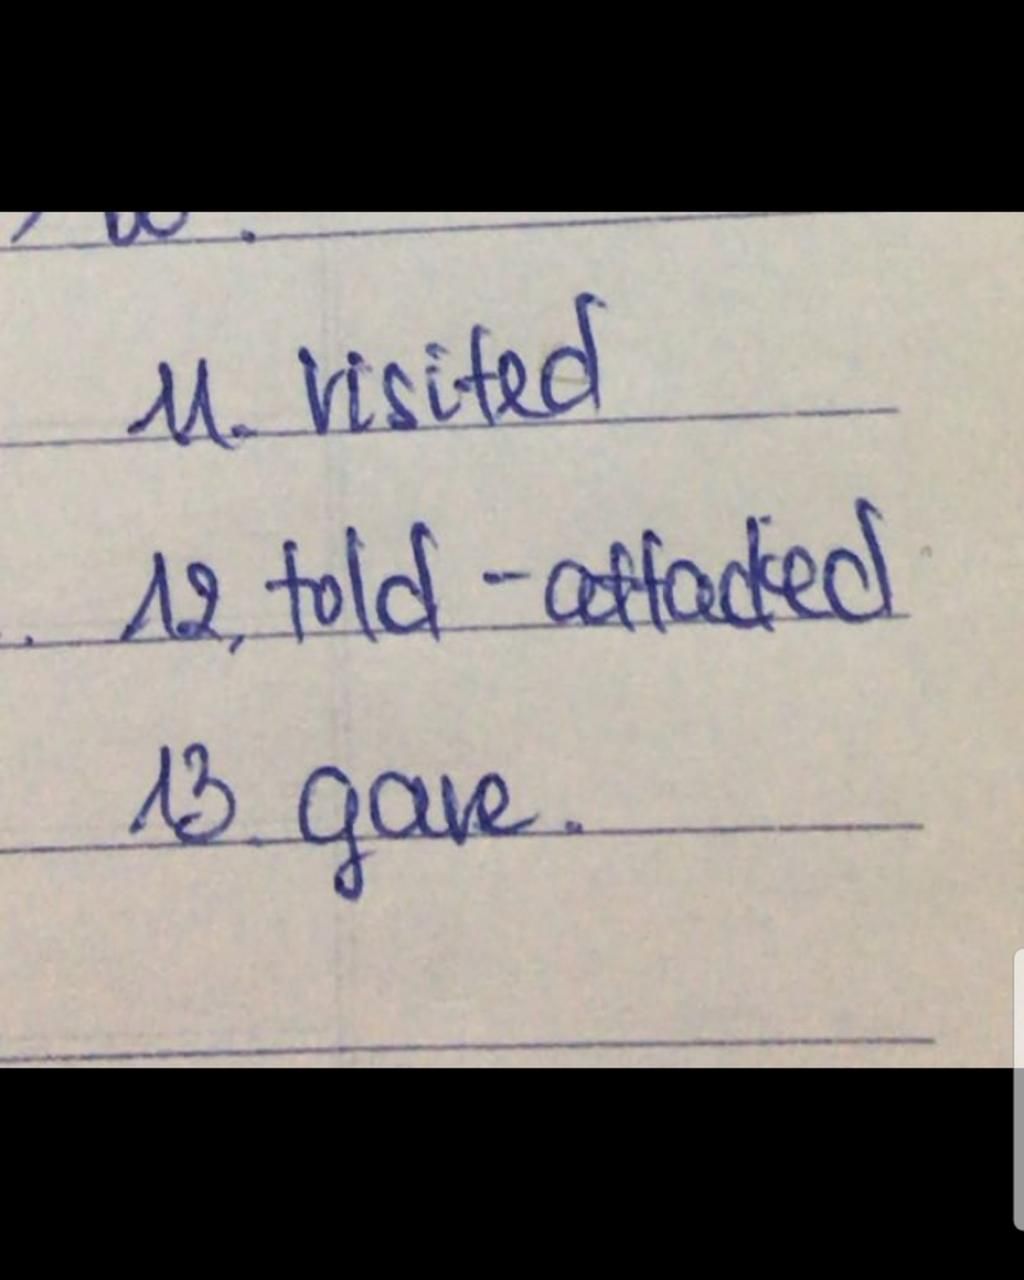 11. visited
12, told - attacked
13. gave.